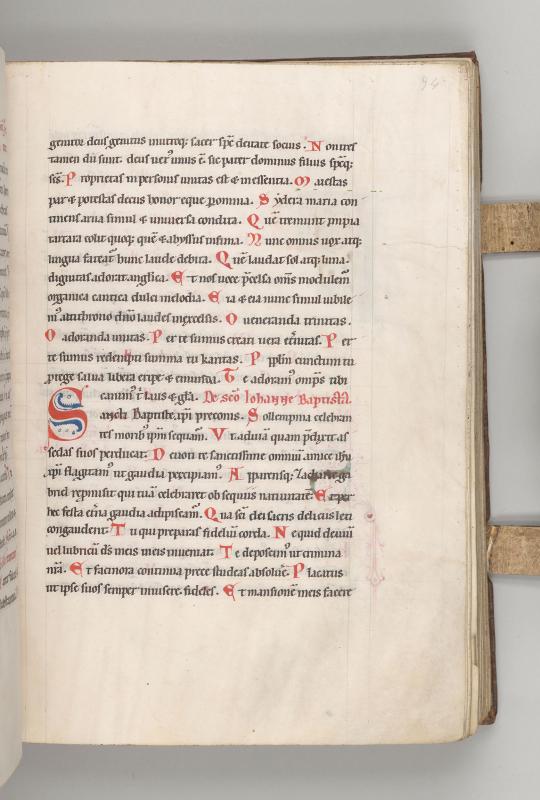 genitor deus genitus inutroq; sacer spc deitate socius. Non tres
tamen dii sunt. deus uer' unus e. sic pater dominus filius spcq;
scs. Proprietas in personis unitas est & in essentia. Maiestas
par & potestas decus honor eque p omnia. Sydera maria con
tinens arua simul & uniuersa condita. Que tremunt impia
tartara colit quoq; que & abyssus infima. Nunc omnis uox atq;
lingua fateat hunc laude debita. Que laudat sol atq; luna.
dignitas adorat anglica. Et nos uoce pcelsa oms modulem
organica cantica dulci melodia. Eia & eia nunc simul iubile
m' altithrono dno laudes inexcelsis. O ueneranda trinitas.
O adoranda unitas. Per te sumus creati uera eternitas. Per
te sumus redempti summa tu karitas. Pplm cunctum tu
ptege salua libera eripe & emunda. Te adoram' omps tibi
canim' t laus & gla. De sco Iohanne Baptista.
Sancti Baptiste xpi preconis. Sollempnia celebran
tes moribus ipm sequam. Vt ad uia quam pdixit as
seclas suos perducat. Deuoti te sanctissime omniu amice ihu
xpi flagitam' ut gaudia percipiam'. Apparensq; Zacharie ga
briel repmisit qui tua celebraret ob sequiis natiuitate. Et per
hec festa etna gaudia adipiscam'. Qua sci dei sacris deliciis leti
congaudent. Tu qui preparas fideliu corda. Ne quid deuiu
uel lubricu ds meis meis inueniat. Te deposcim' ut crimina
nra. Et facinora continua prece studeas absolue. Placatus
ut ipse suos semper inuisere fideles. Et mansione meis facere